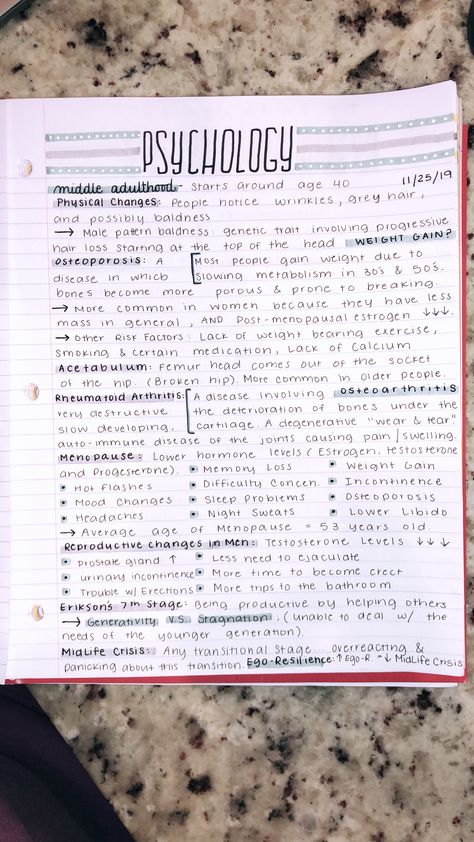 PSYCHOLOGY
middle adulthood - Starts around age 40 11/25/19
Physical Changes: People notice wrinkles, grey hair,
and possibly baldness
→ Male pattern baldness: genetic trait involving progressive
hair loss starting at the top of the head WEIGHT GAIN?
Osteoporosis: A [Most people gain weight due to
disease in which slowing metabolism in 30's & 50's.
bones become more porous & prone to breaking.
→ More common in women because they have less
mass in general, AND Post-menopausal estrogen ↓↓↓.
→ Other Risk Factors: Lack of weight bearing exercise,
smoking & certain medication, Lack of Calcium
Acetabulum: Femur head comes out of the socket
of the hip. (Broken hip). More common in older people.
Rheumatoid Arthritis: [A disease involving osteoarthritis
very destructive the deterioration of bones under the
slow developing, cartilage. A degenerative "wear & tear"
auto-immune disease of the joints causing pain/swelling.
Menopause: Lower hormone levels (Estrogen, testosterone
and Progesterone). • Memory Loss • Weight Gain
• Hot flashes • Difficulty Concen. • Incontinence
• Mood Changes • Sleep Problems • Osteoporosis
• Headaches • Night Sweats • Lower Libido
→ Average age of Menopause = 53 years old.
Reproductive Changes in Men: Testosterone Levels ↓↓↓
• prostate gland ↑ • Less need to ejaculate
• urinary incontinence • More time to become erect
• Trouble w/ Erections • More trips to the bathroom
Erikson's 7th Stage: Being productive by helping others
→ Generativity V.S. Stagnation: (unable to deal w/ the
needs of the younger generation).
MidLife Crisis: Any transitional stage... overreacting &
panicking about this transition. Ego-Resilience: ↑ Ego-R = ↓ MidLife Crisis